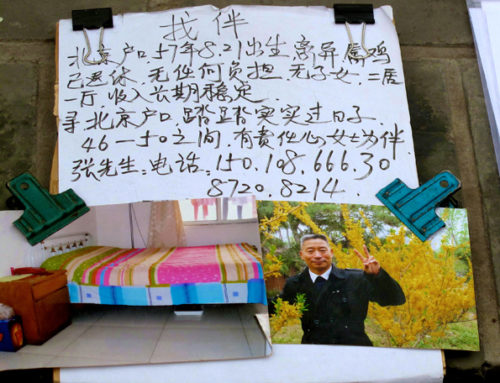 找伴
北京户口.57年8.21出生.离异.属鸡
已退休.无任何负担.无子女.二居
一厅.收入长期稳定.
寻北京户口.踏踏实实过日子.
46—50之间.有责任心女士为伴
张先生:电话:150.108.666.30
8720.8214.